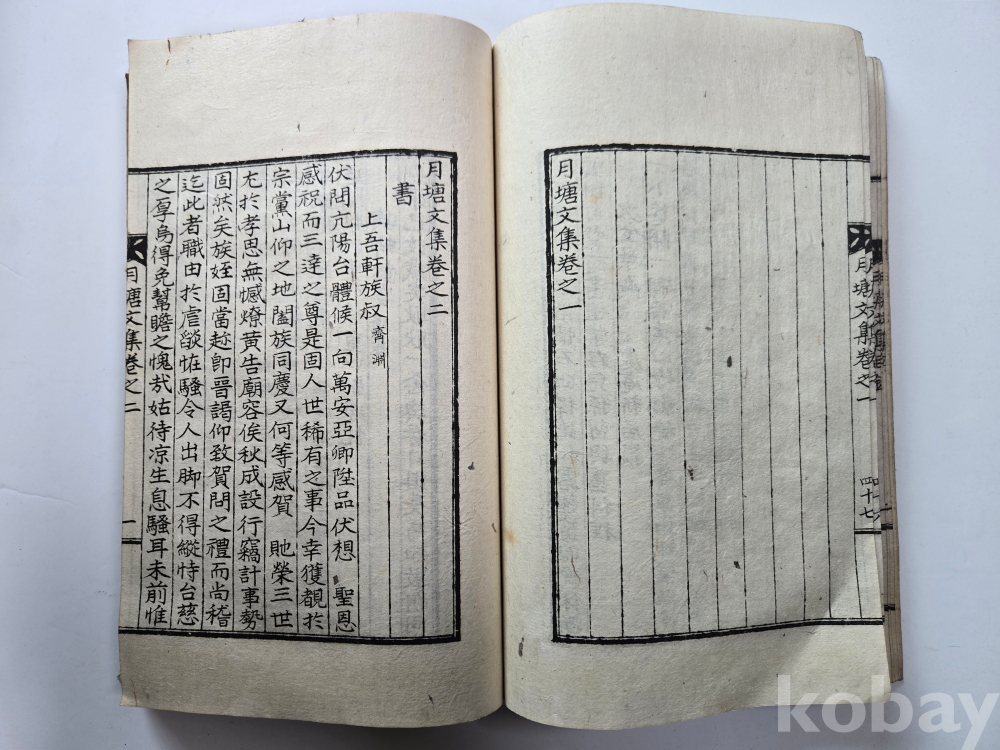 月塘文集卷之一
四十七
月塘文集卷之一
月塘文集卷之二
書
上吾軒族叔 齊淵
伏問亢陽台體候一旬萬安亞卿陞品伏想 聖恩
感祝而三達之尊是固人世稀有之事今幸獲覩於
宗黨山仰之地闔族同慶又何等感賀 貤榮三世
尢於孝思無憾燎黃告廟容俟秋成設行竊計事勢
固然矣族姪固當趁卽晉謁仰致賀問之禮而尚稽
迄此者職由於虐燄恠騷令人出脚不得縱恃台慈
之厚烏得免幫瞻之愧㢤姑待凉生息騷耳未前惟
月塘文集卷之二
一
kobay